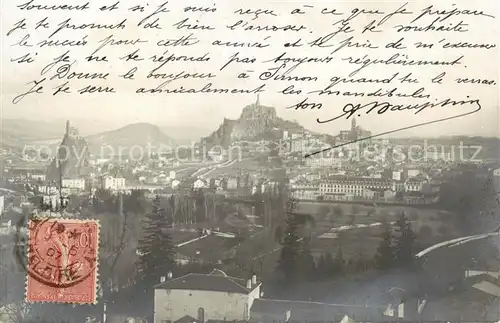 souvent et si je suis reçu à ce que je prépare je
te promets de bien l'arroser. Je te souhaite
le succès pour cette année et te prie de m'excuser
si je ne te réponds pas toujours régulièrement.
Donne le bonjour à Simon quand tu le verras.
Je te serre amicalement les mandibules
ton
delcampe.net